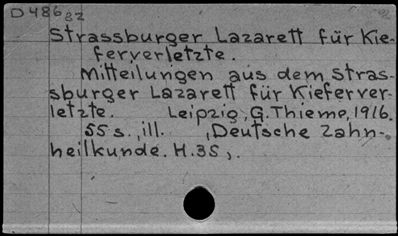 D 486 82
Strassburger Lazarett für Kie-
ferverletzte.
Mitteilungen aus dem Stras-
sburger Lazarett für Kieferver-
letzte. Leipzig, G. Thieme, 1916.
55 s., ill. , (Deutsche Zahn-
heilkunde. H. 35),.